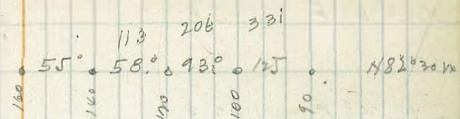 113 206 331
55° 58. 93. 125 N82°30 W
160 140 120 100 90